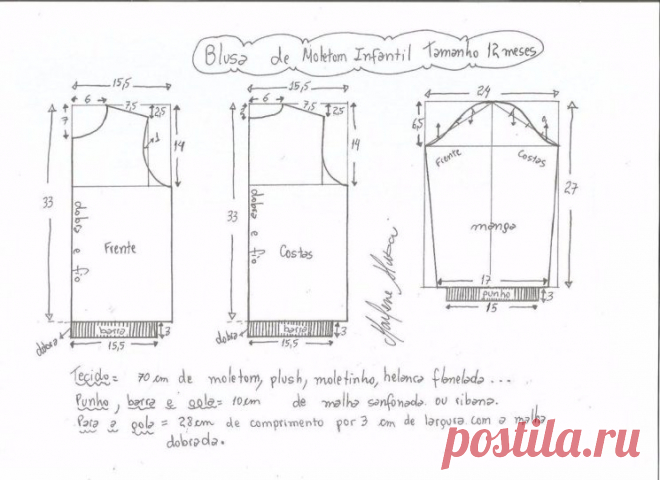 Blusa de Moletom Infantil Tamanho 12 meses
15,5
6
7,5
2,5
7
1
14
33
dobra e fio
Frente
barra
3
dobra
15,5
15,5
6
7,5
2,5
14
33
dobra e fio
Costas
barra
3
dobra
15,5
24
6,5
Frente
Costas
27
manga
17
punho
3
15
Tecido = 70 cm de moletom, plush, moletinho, helanca flanelada ...
Punho, barra e gola = 10 cm de malha sanfonada ou ribana.
Para a gola = 28 cm de comprimento por 3 cm de largura com a malha
dobrada.
postila.ru